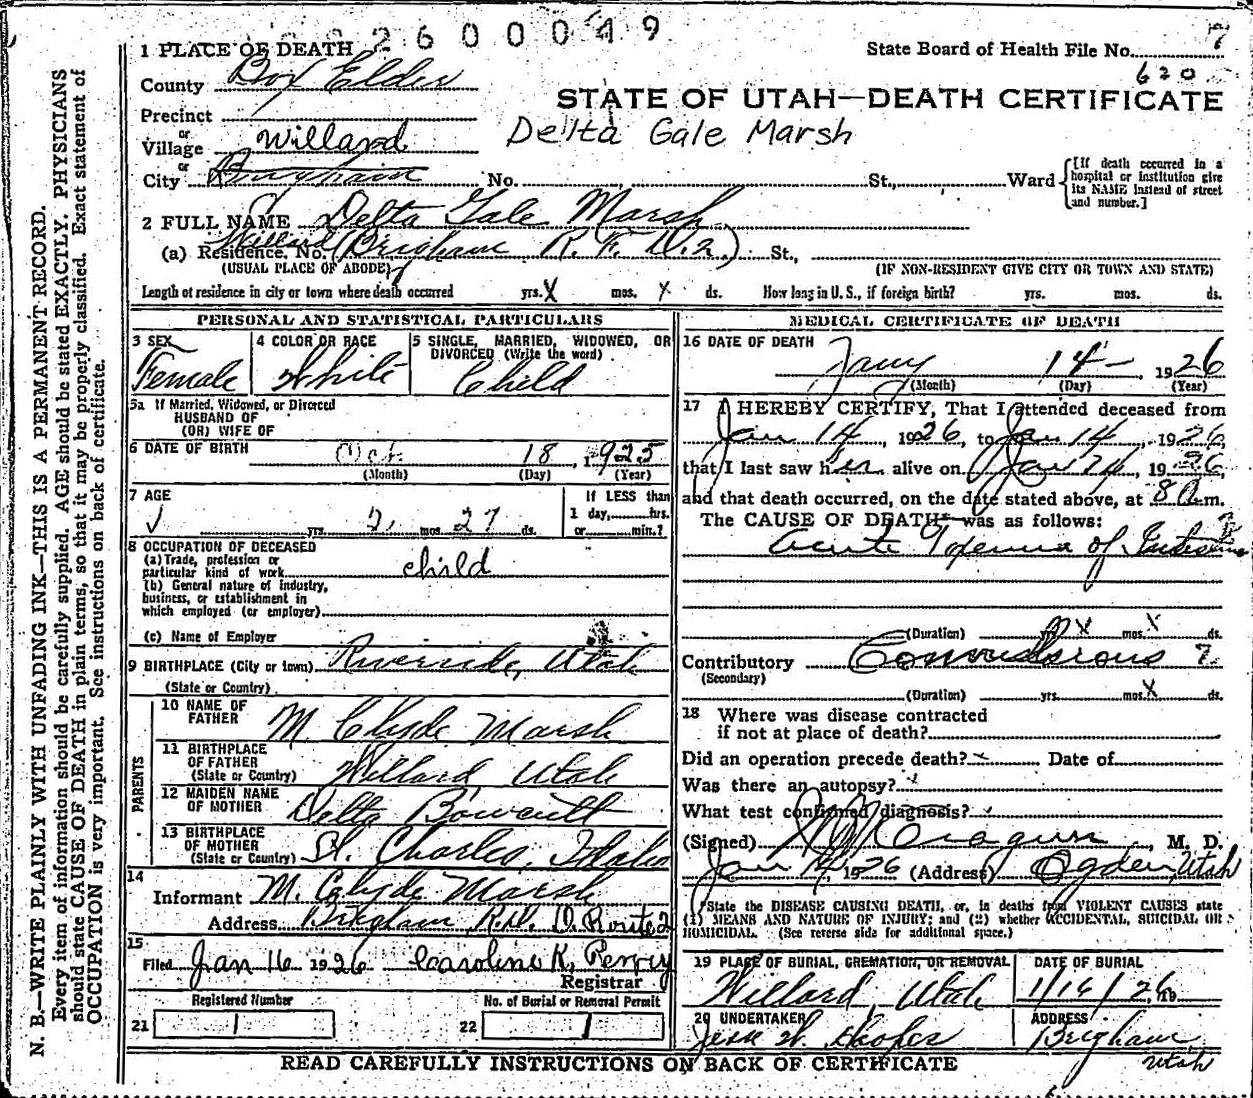 2600049
1 PLACE OF DEATH
State Board of Health File No. 7
620
County Box Elder
STATE OF UTAH—DEATH CERTIFICATE
Precinct
or
Village Willard
Delta Gale Marsh
or
City Brigham No. St., Ward
[If death occurred in a hospital or institution give its NAME instead of street and number.]
2 FULL NAME Delta Gale Marsh
(a) Residence. No. Willard (Brigham R. F. D. 2) St.,
(USUAL PLACE OF ABODE)
(IF NON-RESIDENT GIVE CITY OR TOWN AND STATE)
Length of residence in city or town where death occurred yrs. X mos. X ds. How long in U. S., if foreign birth? yrs. mos. ds.
PERSONAL AND STATISTICAL PARTICULARS
3 SEX
Female
4 COLOR OR RACE
White
5 SINGLE, MARRIED, WIDOWED, OR DIVORCED (Write the word)
Child
5a If Married, Widowed, or Divorced
HUSBAND OF
(OR) WIFE OF
6 DATE OF BIRTH Oct. 18, 1925
(Month) (Day) (Year)
7 AGE
yrs. 2 mos. 27 ds.
If LESS than
1 day, hrs.
or min.?
8 OCCUPATION OF DECEASED
(a) Trade, profession or
particular kind of work child
(b) General nature of industry,
business, or establishment in
which employed (or employer)
(c) Name of Employer
9 BIRTHPLACE (City or town) Riverside, Utah
(State or Country)
PARENTS
10 NAME OF
FATHER M. Clyde Marsh
11 BIRTHPLACE
OF FATHER
(State or Country) Willard Utah
12 MAIDEN NAME
OF MOTHER Delta Bowcutt
13 BIRTHPLACE
OF MOTHER
(State or Country) St. Charles, Idaho
14
Informant M. Clyde Marsh
Address Brigham R. D. Route 2
15
Filed Jan 16 1926 Caroline K. Perry
Registrar
Registered Number
21 1
No. of Burial or Removal Permit
22 1
MEDICAL CERTIFICATE OF DEATH
16 DATE OF DEATH
Jany 14 — , 1926
(Month) (Day) (Year)
17 I HEREBY CERTIFY, That I attended deceased from
Jan 14, 1926, to Jan 14, 1926
that I last saw her alive on Jan 14, 1926
and that death occurred, on the date stated above, at 8 a.m.
The CAUSE OF DEATH* was as follows:
acute Toxemia of
(Duration) yrs. X mos. X ds.
Contributory Convulsions
(Secondary)
(Duration) yrs. mos. X ds.
18 Where was disease contracted
if not at place of death?
Did an operation precede death? Date of
Was there an autopsy?
What test confirmed diagnosis?
(Signed) Cragun, M. D.
Jan 14, 1926 (Address) Ogden, Utah
*State the DISEASE CAUSING DEATH, or, in deaths from VIOLENT CAUSES state
(1) MEANS AND NATURE OF INJURY; and (2) whether ACCIDENTAL, SUICIDAL OR
HOMICIDAL. (See reverse side for additional space.)
19 PLACE OF BURIAL, CREMATION, OR REMOVAL
Willard, Utah
DATE OF BURIAL
1/16/26, 19
20 UNDERTAKER
Jesse W. Hooper
ADDRESS
Brigham
Utah
READ CAREFULLY INSTRUCTIONS ON BACK OF CERTIFICATE
N. B.—WRITE PLAINLY WITH UNFADING INK—THIS IS A PERMANENT RECORD.
Every item of information should be carefully supplied. AGE should be stated EXACTLY. PHYSICIANS
should state CAUSE OF DEATH in plain terms, so that it may be properly classified. Exact statement of
OCCUPATION is very important. See instructions on back of certificate.